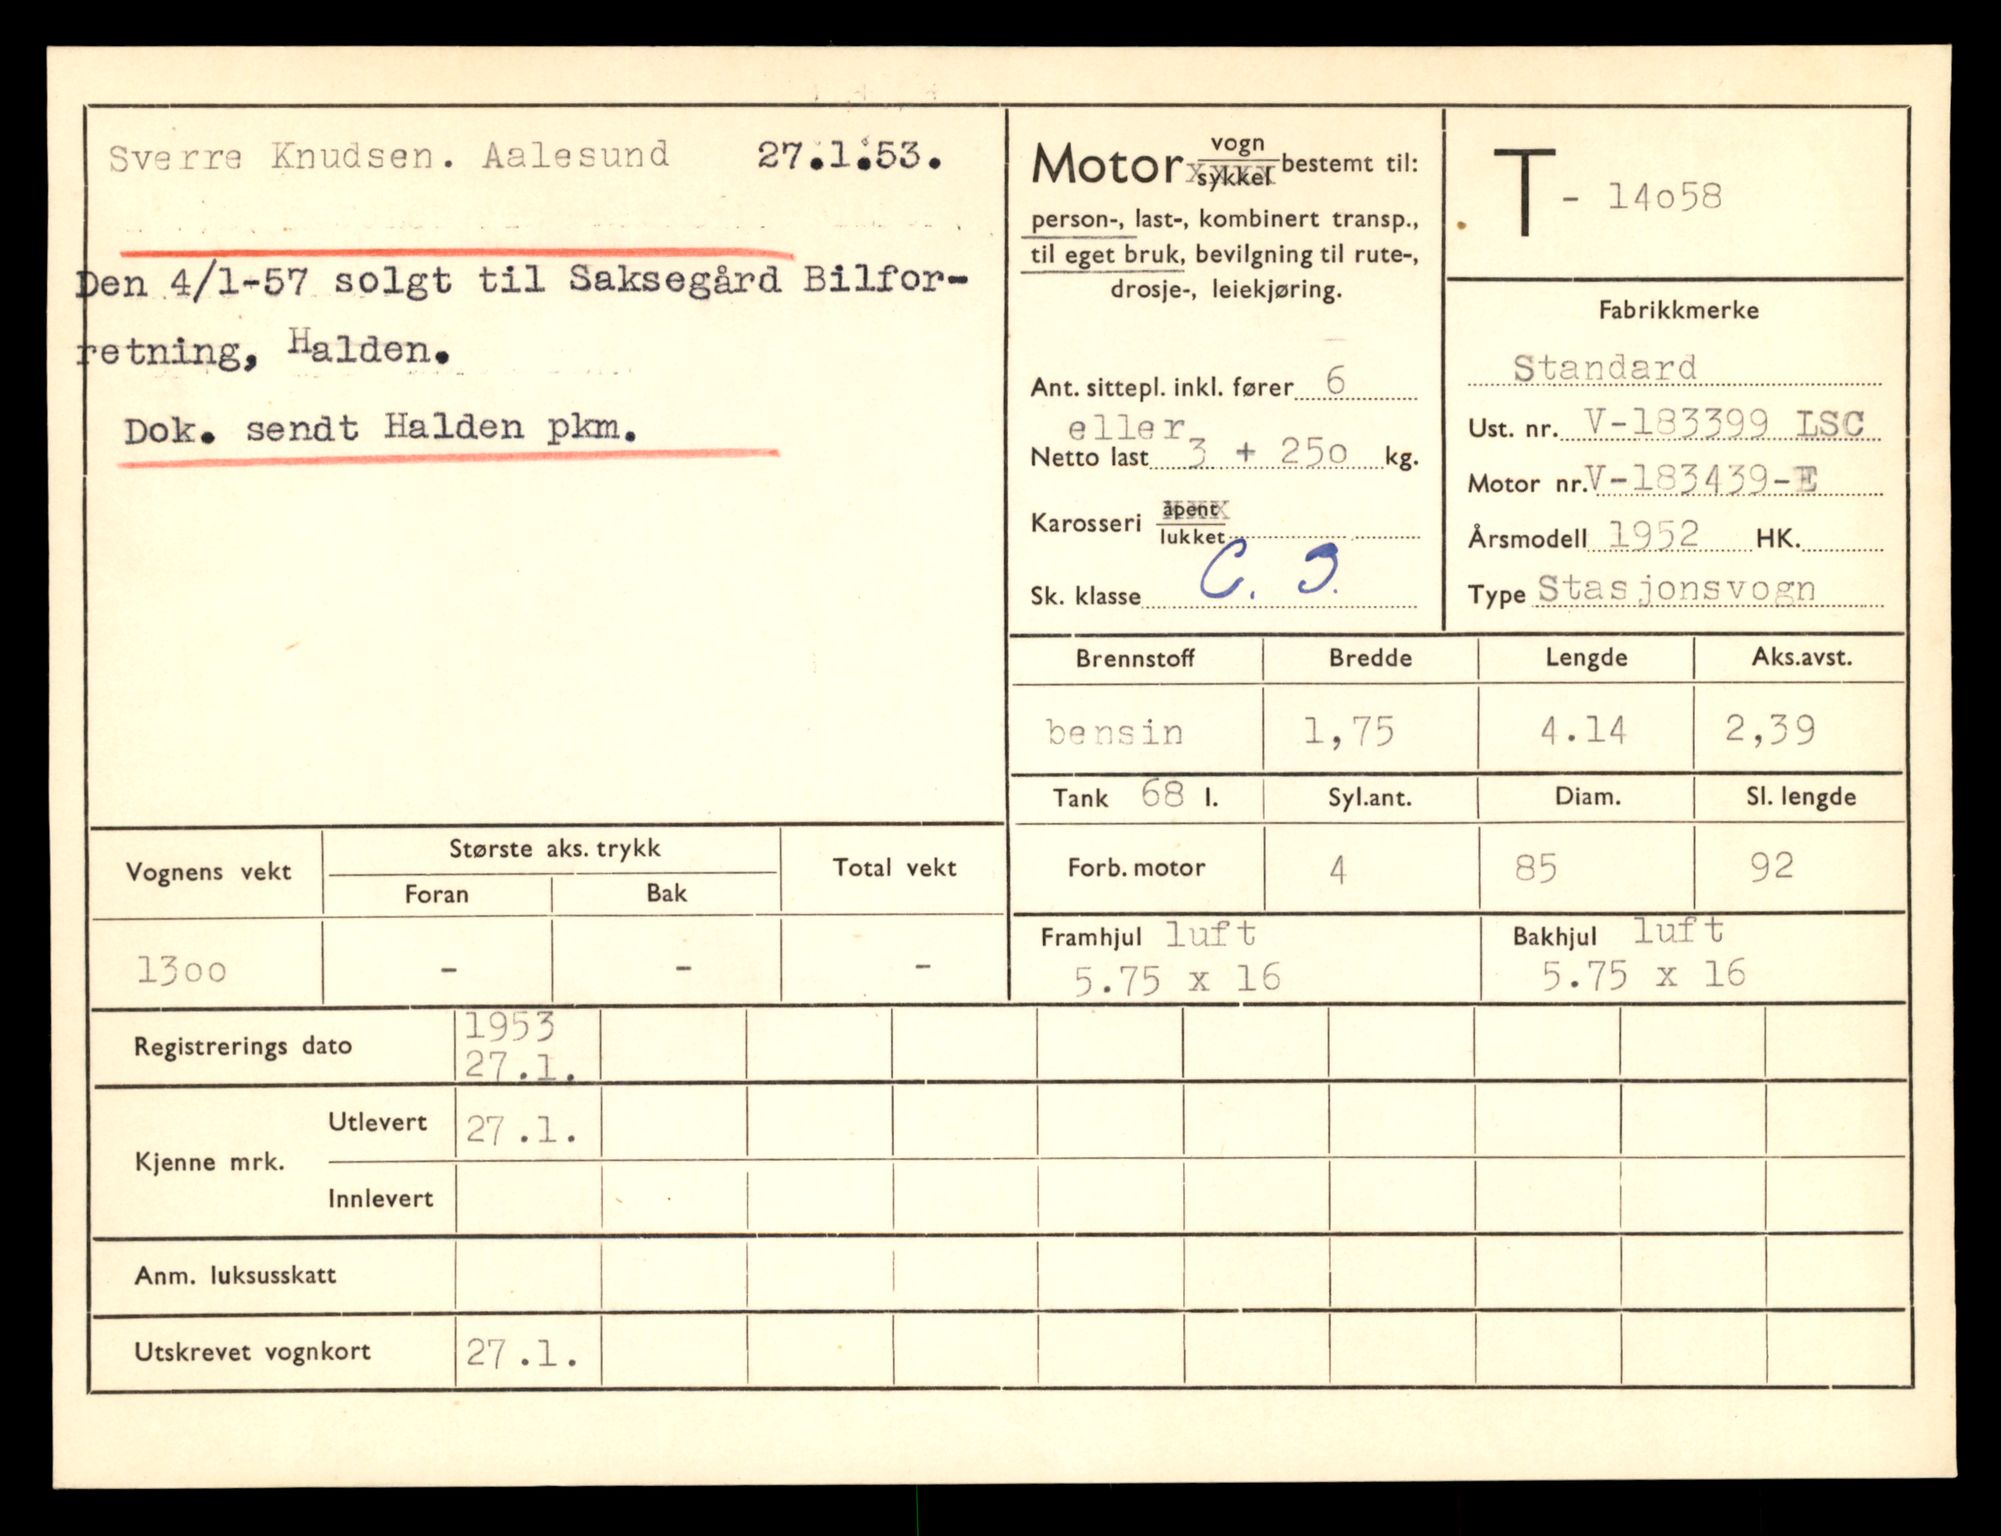 Sverre Knudsen. Aalesund 27.1.53.
Den 4/1-57 solgt til Saksegård Bilfor-
retning, Halden.
Dok. sendt Halden pkm.
Motor vogn
sykkel bestemt til:
person-, last-, kombinert transp.,
til eget bruk, bevilgning til rute-,
drosje-, leiekjøring.
Ant. sittepl. inkl. fører 6
eller
Netto last 3 + 250 kg.
Karosseri åpent
lukket
Sk. klasse C. 3.
T - 14o58
Fabrikkmerke
Standard
Ust. nr. V-183399 LSC
Motor nr. V-183439-E
Årsmodell 1952 HK.
Type Stasjonsvogn
Brennstoff Bredde Lengde Aks.avst.
bensin 1,75 4.14 2,39
Tank 68 l. Syl.ant. Diam. Sl. lengde
Forb. motor 4 85 92
Framhjul luft Bakhjul luft
5.75 x 16 5.75 x 16
Vognens vekt Største aks. trykk Total vekt
Foran Bak
13oo - - -
Registrerings dato 1953
27.1.
Kjenne mrk. Utlevert 27.1.
Innlevert
Anm. luksusskatt
Utskrevet vognkort 27.1.